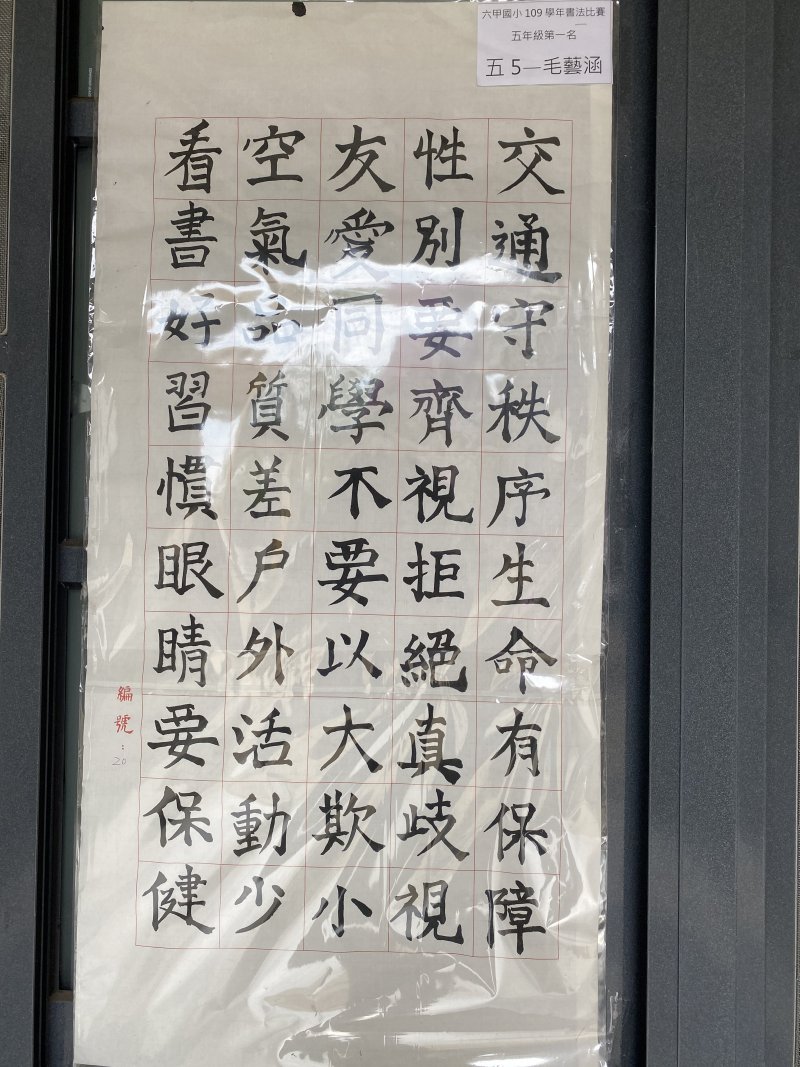 六甲國小 109 學年書法比賽
五年級第一名
五 5—毛藝涵
交通守秩序生命有保障
性別要齊視拒絕真歧視
友愛同學不要以大欺小
空氣品質差戶外活動少
看書好習慣眼睛要保健
編號:20